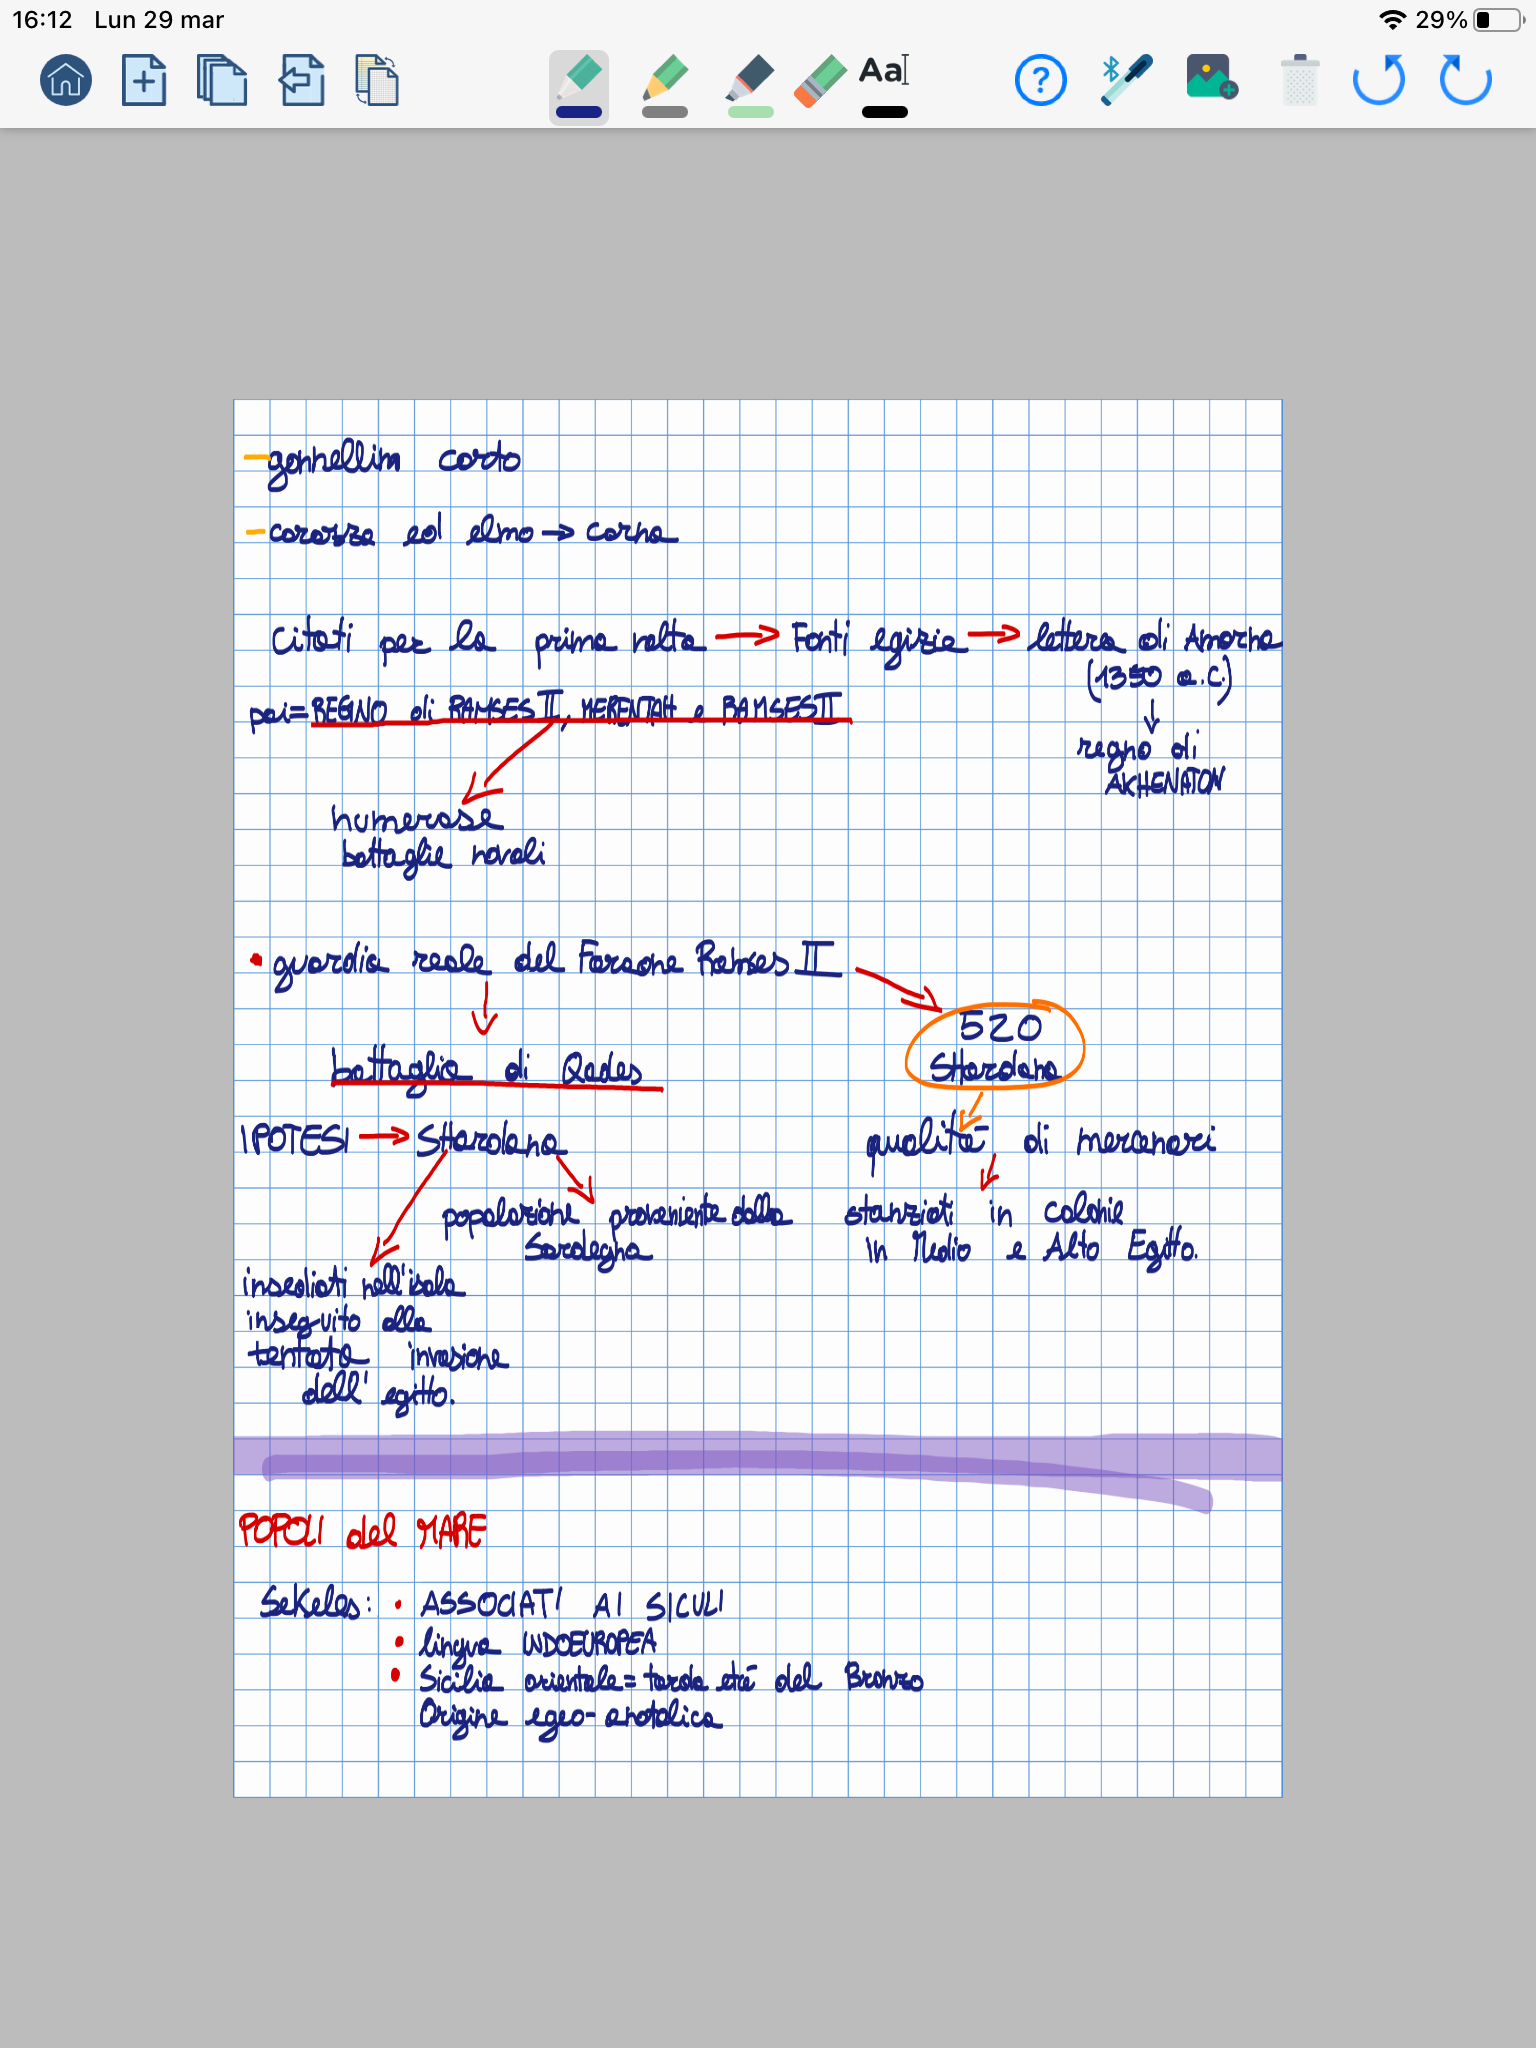 16:12 Lun 29 mar 29%
Aa
?
- gonnellim corto
- corazza ed elmo → corna
Citati per la prima volta → Fonti egizie → lettera di Amarna
(1350 a.C.)
↓
poi= REGNO di RAMSES II, MERENTAH e RAMSES II
regno di
AKHENATON
numerose
battaglie navali
• guardia reale del Faraone Ramses II
520
SHardana
battaglia di Qades
IPOTESI → SHardana
qualità di mercenari
popolazione proveniente dalla
Sardegna
stanziati in colonie
in Medio e Alto Egitto.
insediati nell'isola
inseguito alla
tentata invasione
dell' egitto.
POPOLI del MARE
SeKeles: • ASSOCIATI AI SICULI
• lingua INDOEUROPEA
• Sicilia orientale = tarda età del Bronzo
Origine egeo-anatolica